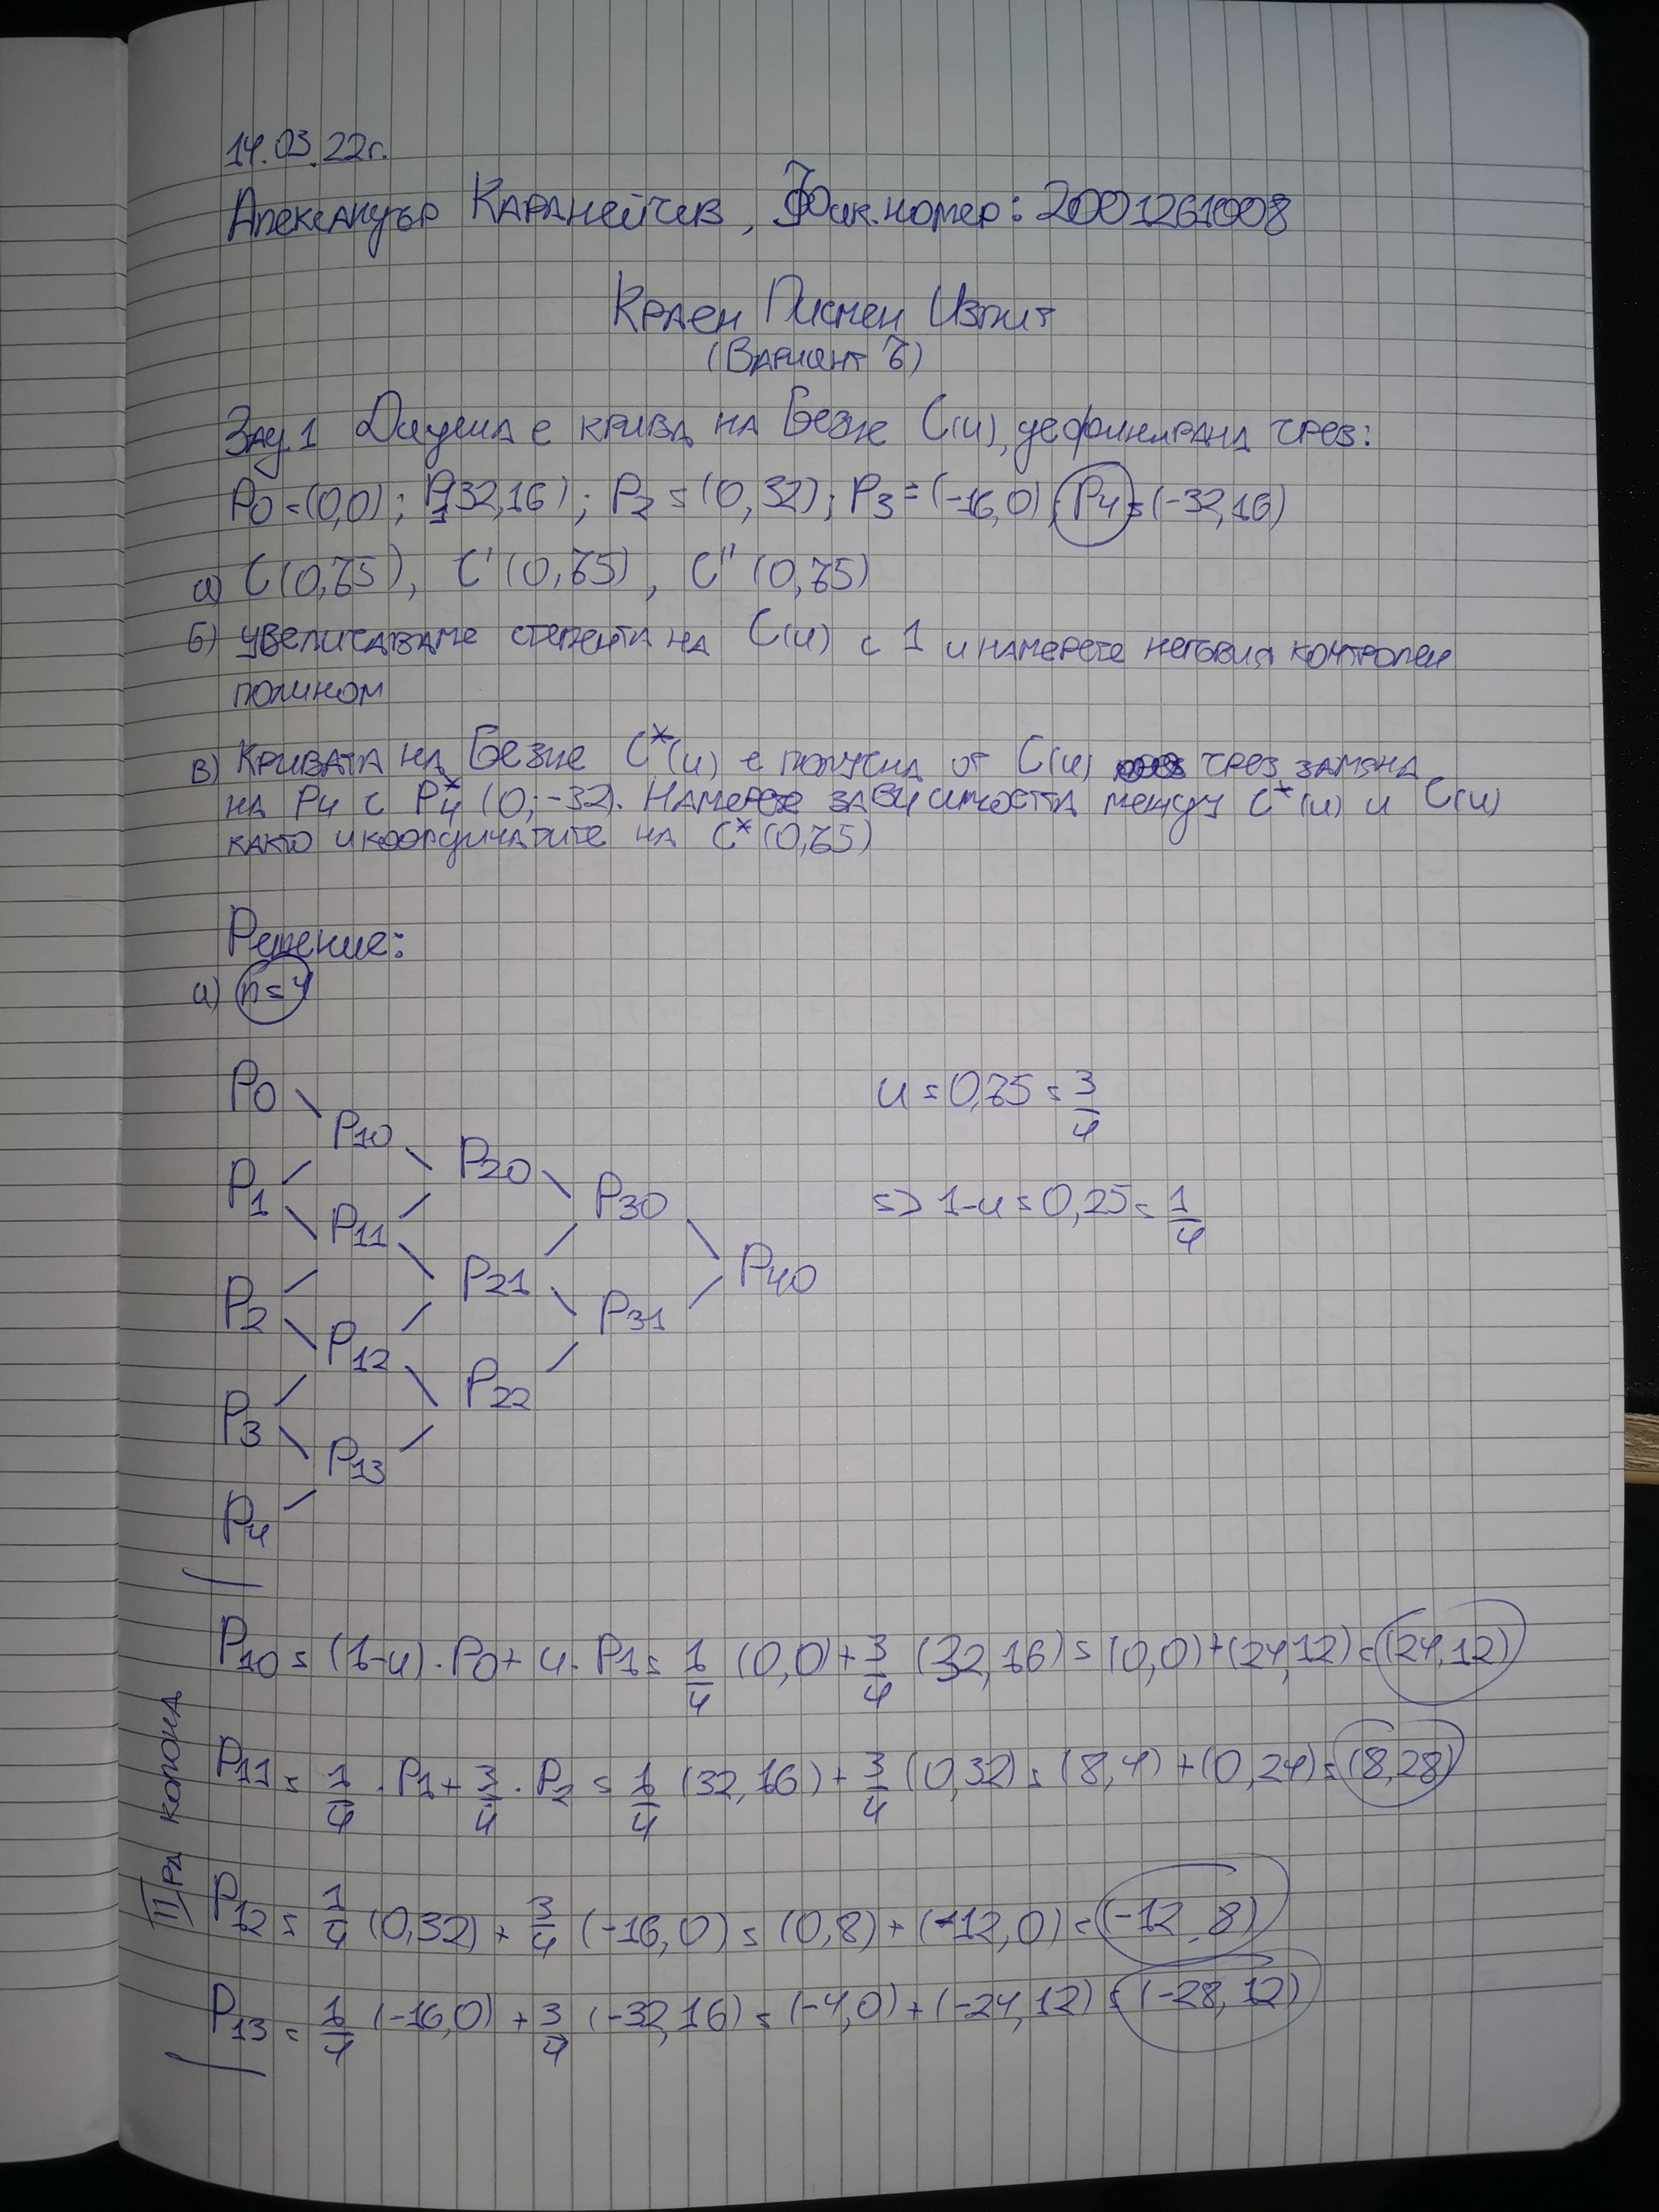 14.03.22г.
Александър Каранейчев, Фак.номер: 2001261008
Краен Писмен Изпит
(Вариант 7)
Зад.1 Дадена е крива на Безие C(u), дефинирана чрез:
P0=(0,0); P1(32,16); P2=(0,32); P3=(-16,0) P4=(-32,16)
а) C(0,75), C'(0,75), C''(0,75)
б) увеличаваме степента на C(u) с 1 и намерете неговия контролен
полином
в) Кривата на Безие C*(u) е получена от C(u) чрез замяна
на P4 с P4*(0;-32). Намерете зависимостта между C*(u) и C(u)
както и координатите на C*(0,75)
Решение:
а) n=4
P0
P10
P1
P20
P11
P30
P2
P21
P40
P12
P31
P3
P22
P13
P4
u=0,75=3/4
=> 1-u=0,25=1/4
IIра колона
P10=(1-u).P0+u.P1=1/4 (0,0)+3/4 (32,16)=(0,0)+(24,12)=(24,12)
P11=1/4.P1+3/4.P2=1/4 (32,16)+3/4 (0,32)=(8,4)+(0,24)=(8,28)
P12=1/4 (0,32)+3/4 (-16,0)=(0,8)+(-12,0)=(-12,8)
P13=1/4 (-16,0)+3/4 (-32,16)=(-4,0)+(-24,12)=(-28,12)